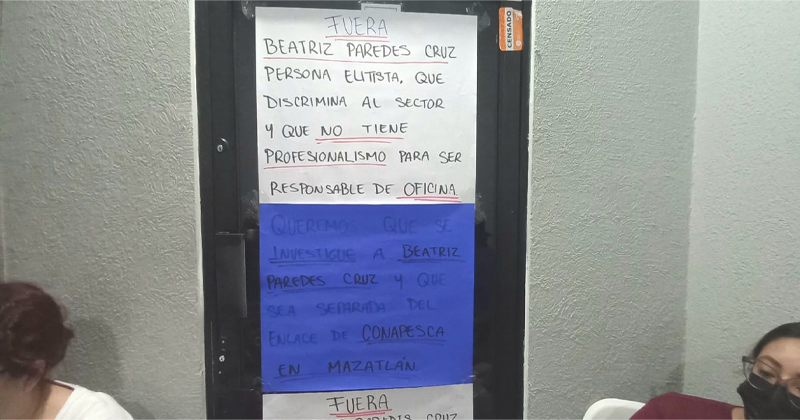 FUERA
BEATRIZ PAREDES CRUZ
PERSONA ELITISTA, QUE
DISCRIMINA AL SECTOR
Y QUE NO TIENE
PROFESIONALISMO PARA SER
RESPONSABLE DE OFICINA
QUEREMOS QUE SE
INVESTIGUE A BEATRIZ
PAREDES CRUZ Y QUE
SEA SEPARADA DEL
ENLACE DE CONAPESCA
EN MAZATLÁN
FUERA
PAREDES CRUZ
CENSADO